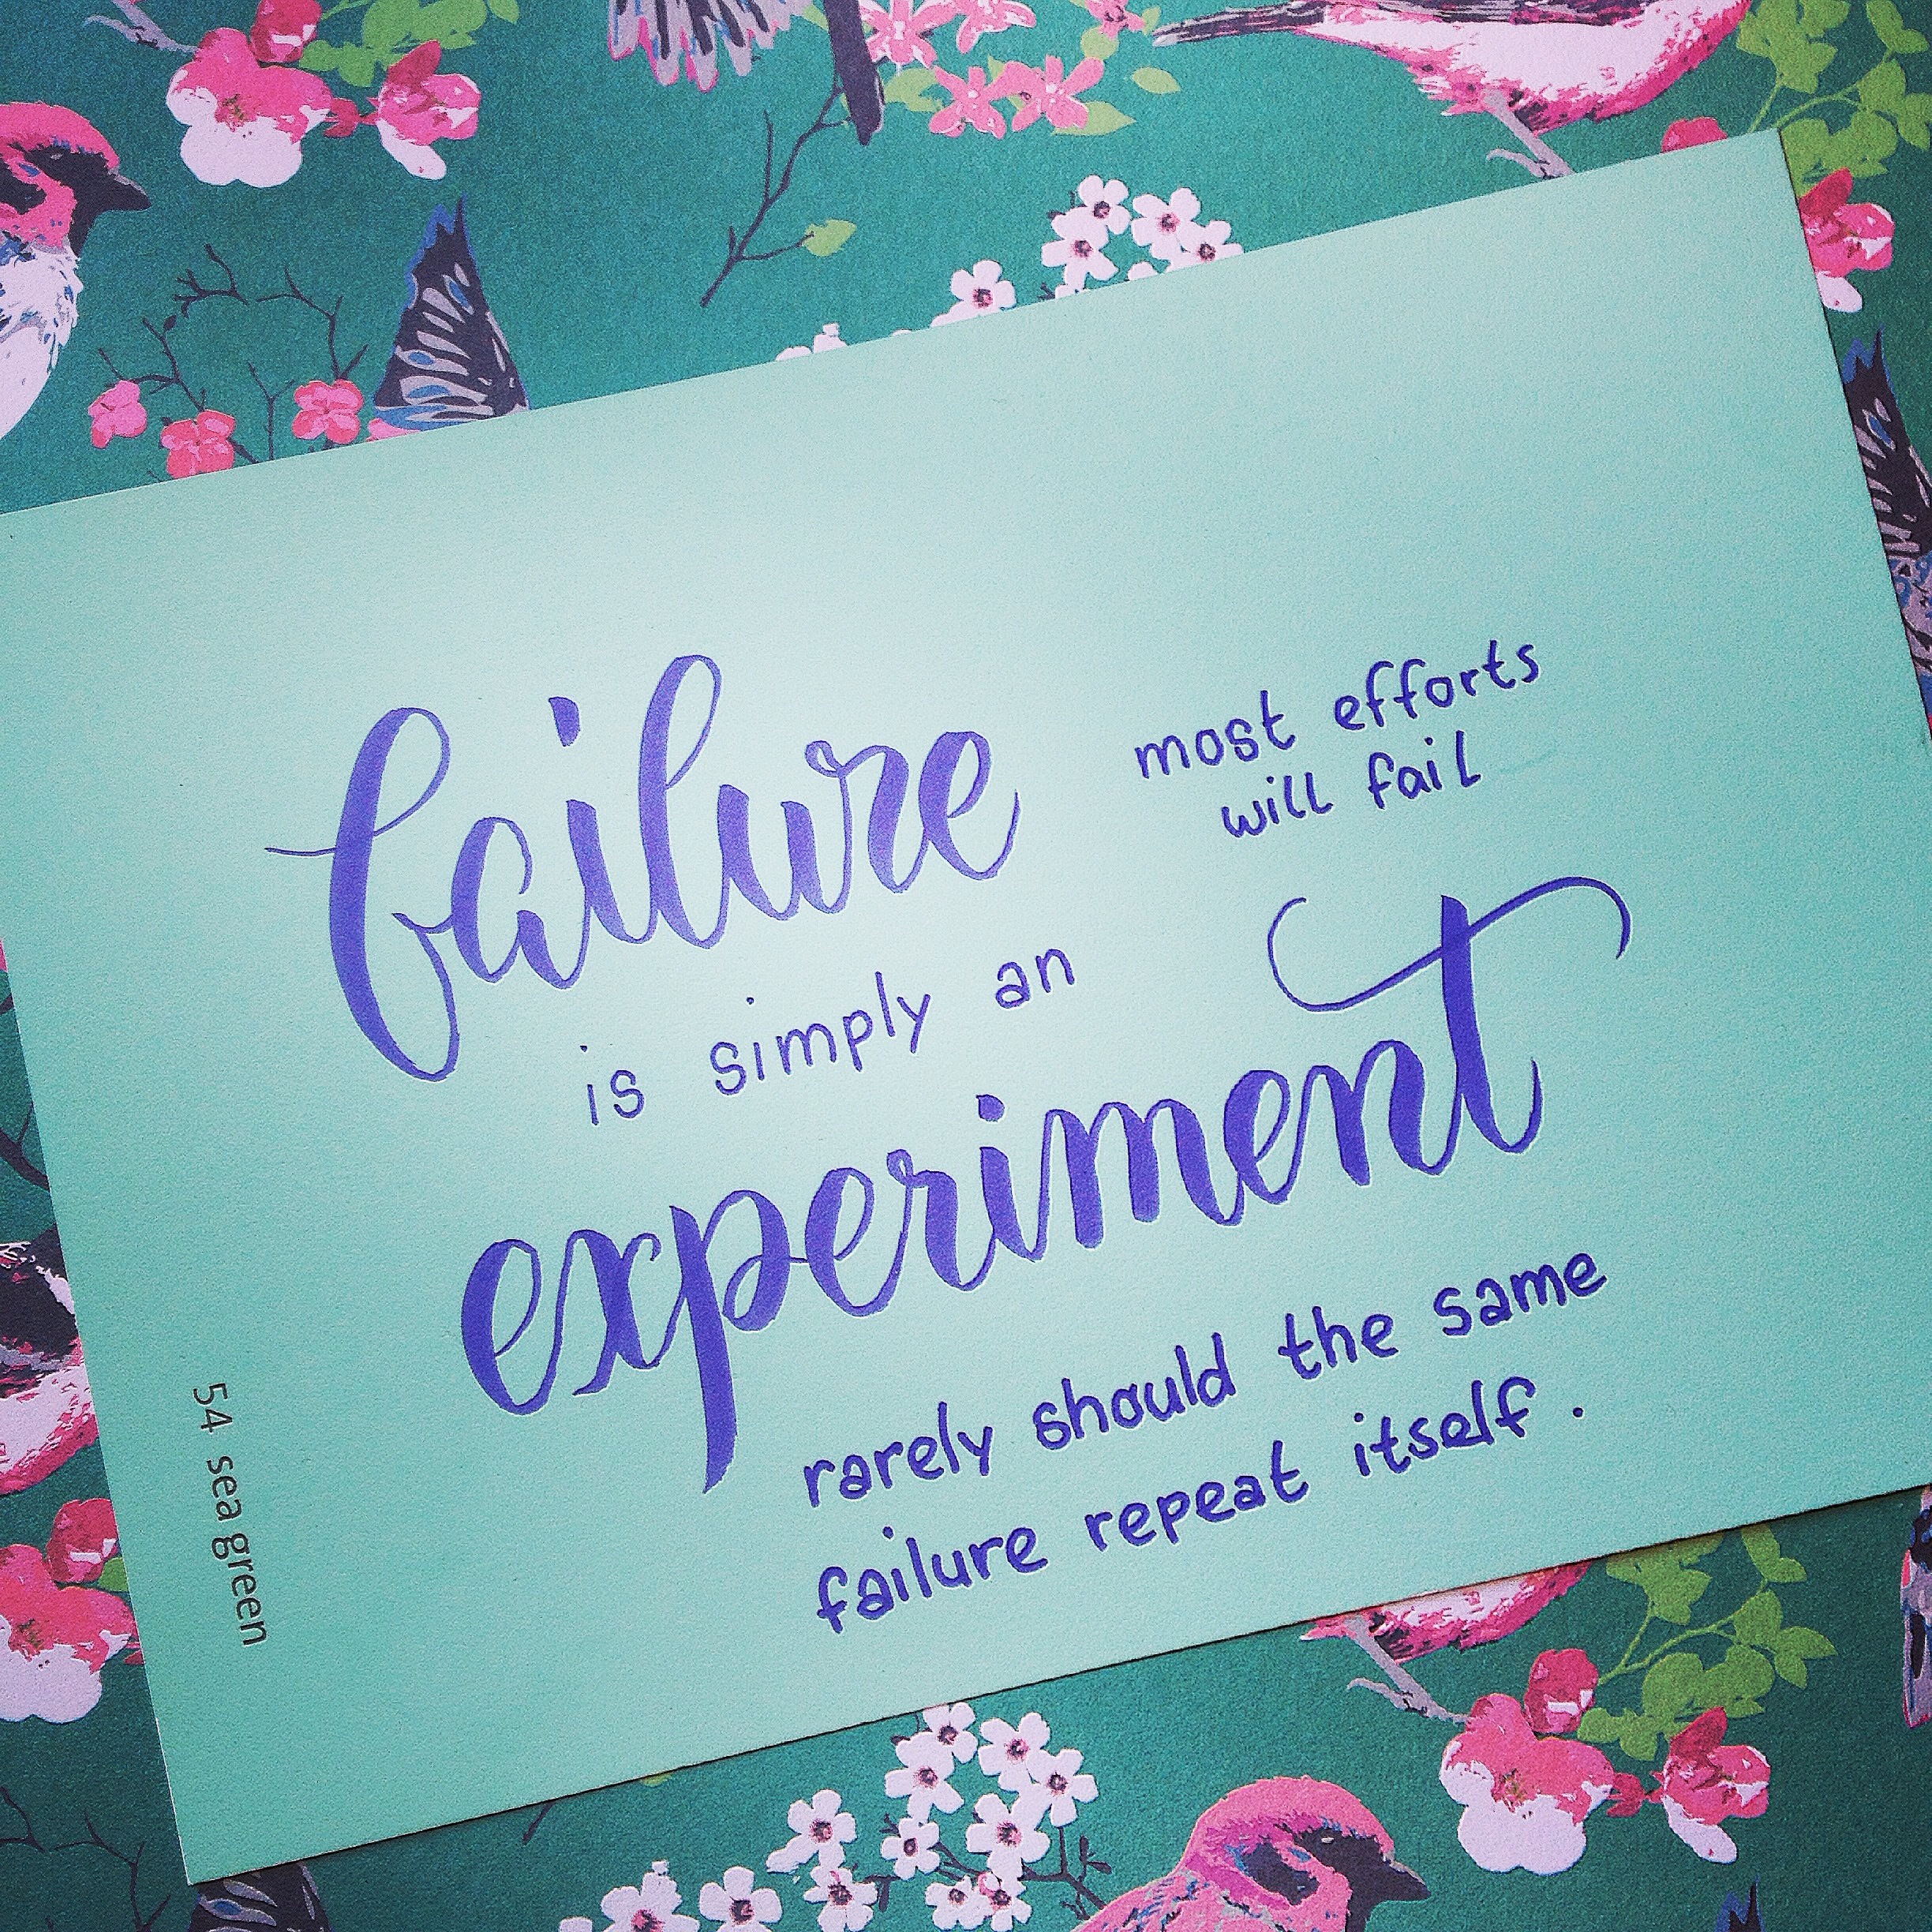 failure
most efforts
will fail
is simply an
experiment
rarely should the same
failure repeat itself.
54 sea green